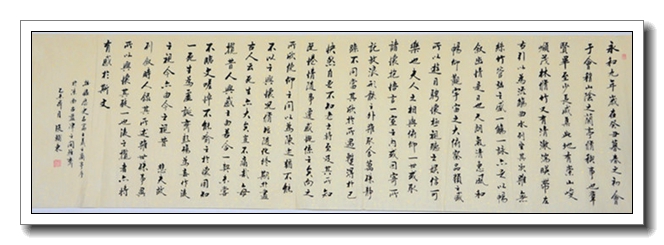 永和九年歲在癸丑暮春之初會
于會稽山陰之蘭亭脩稧事也羣
賢畢至少長咸集此地有崇山峻
領茂林脩竹又有清流激湍暎帶左
右引以為流觴曲水列坐其次雖無
絲竹管弦之盛一觴一詠亦足以暢
敘幽情是日也天朗氣清惠風和
暢仰觀宇宙之大俯察品類之盛
所以遊目騁懷足以極視聽之娛信可
樂也夫人之相與俯仰一世或取
諸懷抱悟言一室之內或因寄所
託放浪形骸之外雖取舍萬殊靜
躁不同當其欣於所遇蹔得於己
快然自足不知老之將至及其所之
既惓情隨事遷感慨係之矣向之
所欣俛仰之間以為陳迹猶不能
不以之興懷況脩短隨化終期於盡
古人云死生亦大矣豈不痛哉每
攬昔人興感之由若合一契未嘗
不臨文嗟悼不能喻之於懷固知
一死生為虛誕齊彭殤為妄作後
之視今亦由今之視昔 悲夫故
列敘時人錄其所述雖世殊事異
所以興懷其致一也後之攬者亦將
有感於斯文